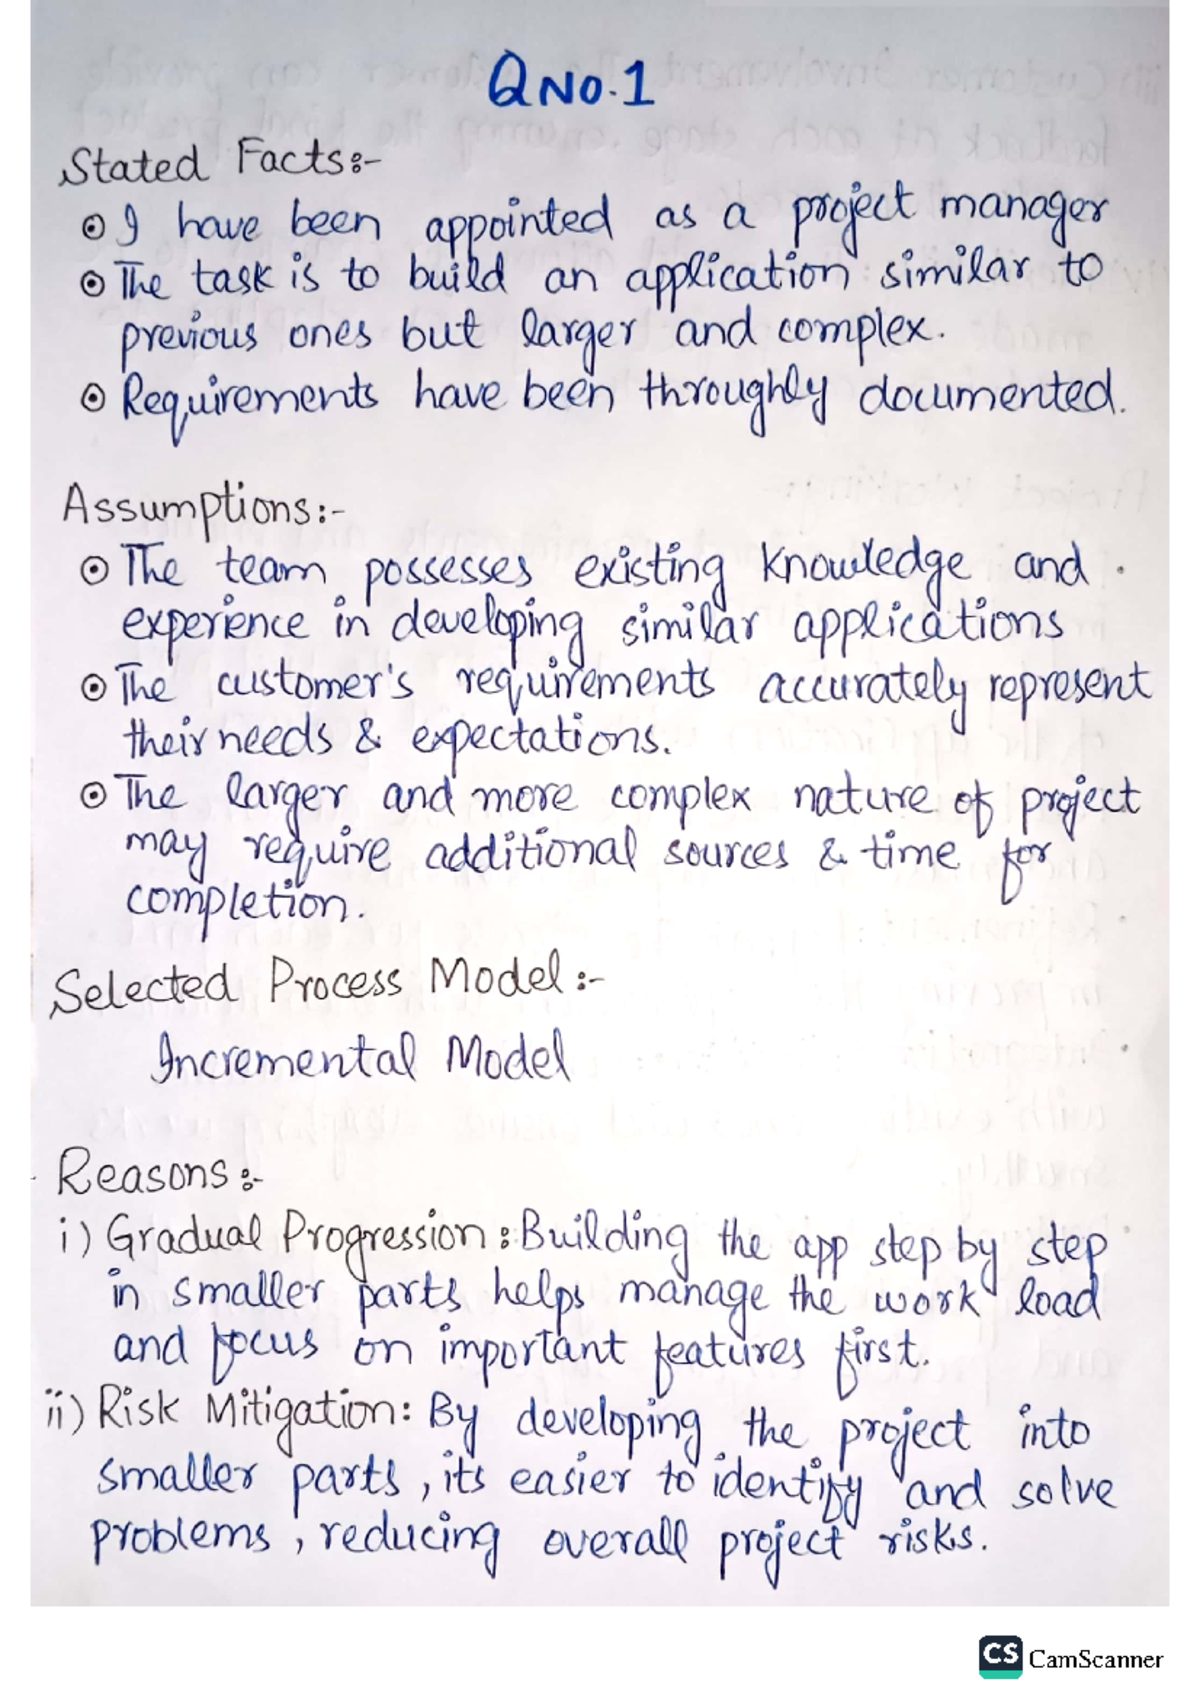 Q No. 1
Stated Facts:-
I have been appointed as a project manager
The task is to build an application similar to
previous ones but larger and complex.
Requirements have been throughly documented.
Assumptions:-
The team possesses existing knowledge and
experience in developing similar applications
The customer's requirements accurately represent
their needs & expectations.
The larger and more complex nature of project
may require additional sources & time for
completion.
Selected Process Model:-
Incremental Model
Reasons:-
i) Gradual Progression: Building the app step by step
in smaller parts helps manage the work load
and focus on important features first.
ii) Risk Mitigation: By developing the project into
smaller parts, its easier to identify and solve
problems, reducing overall project risks.
CS CamScanner